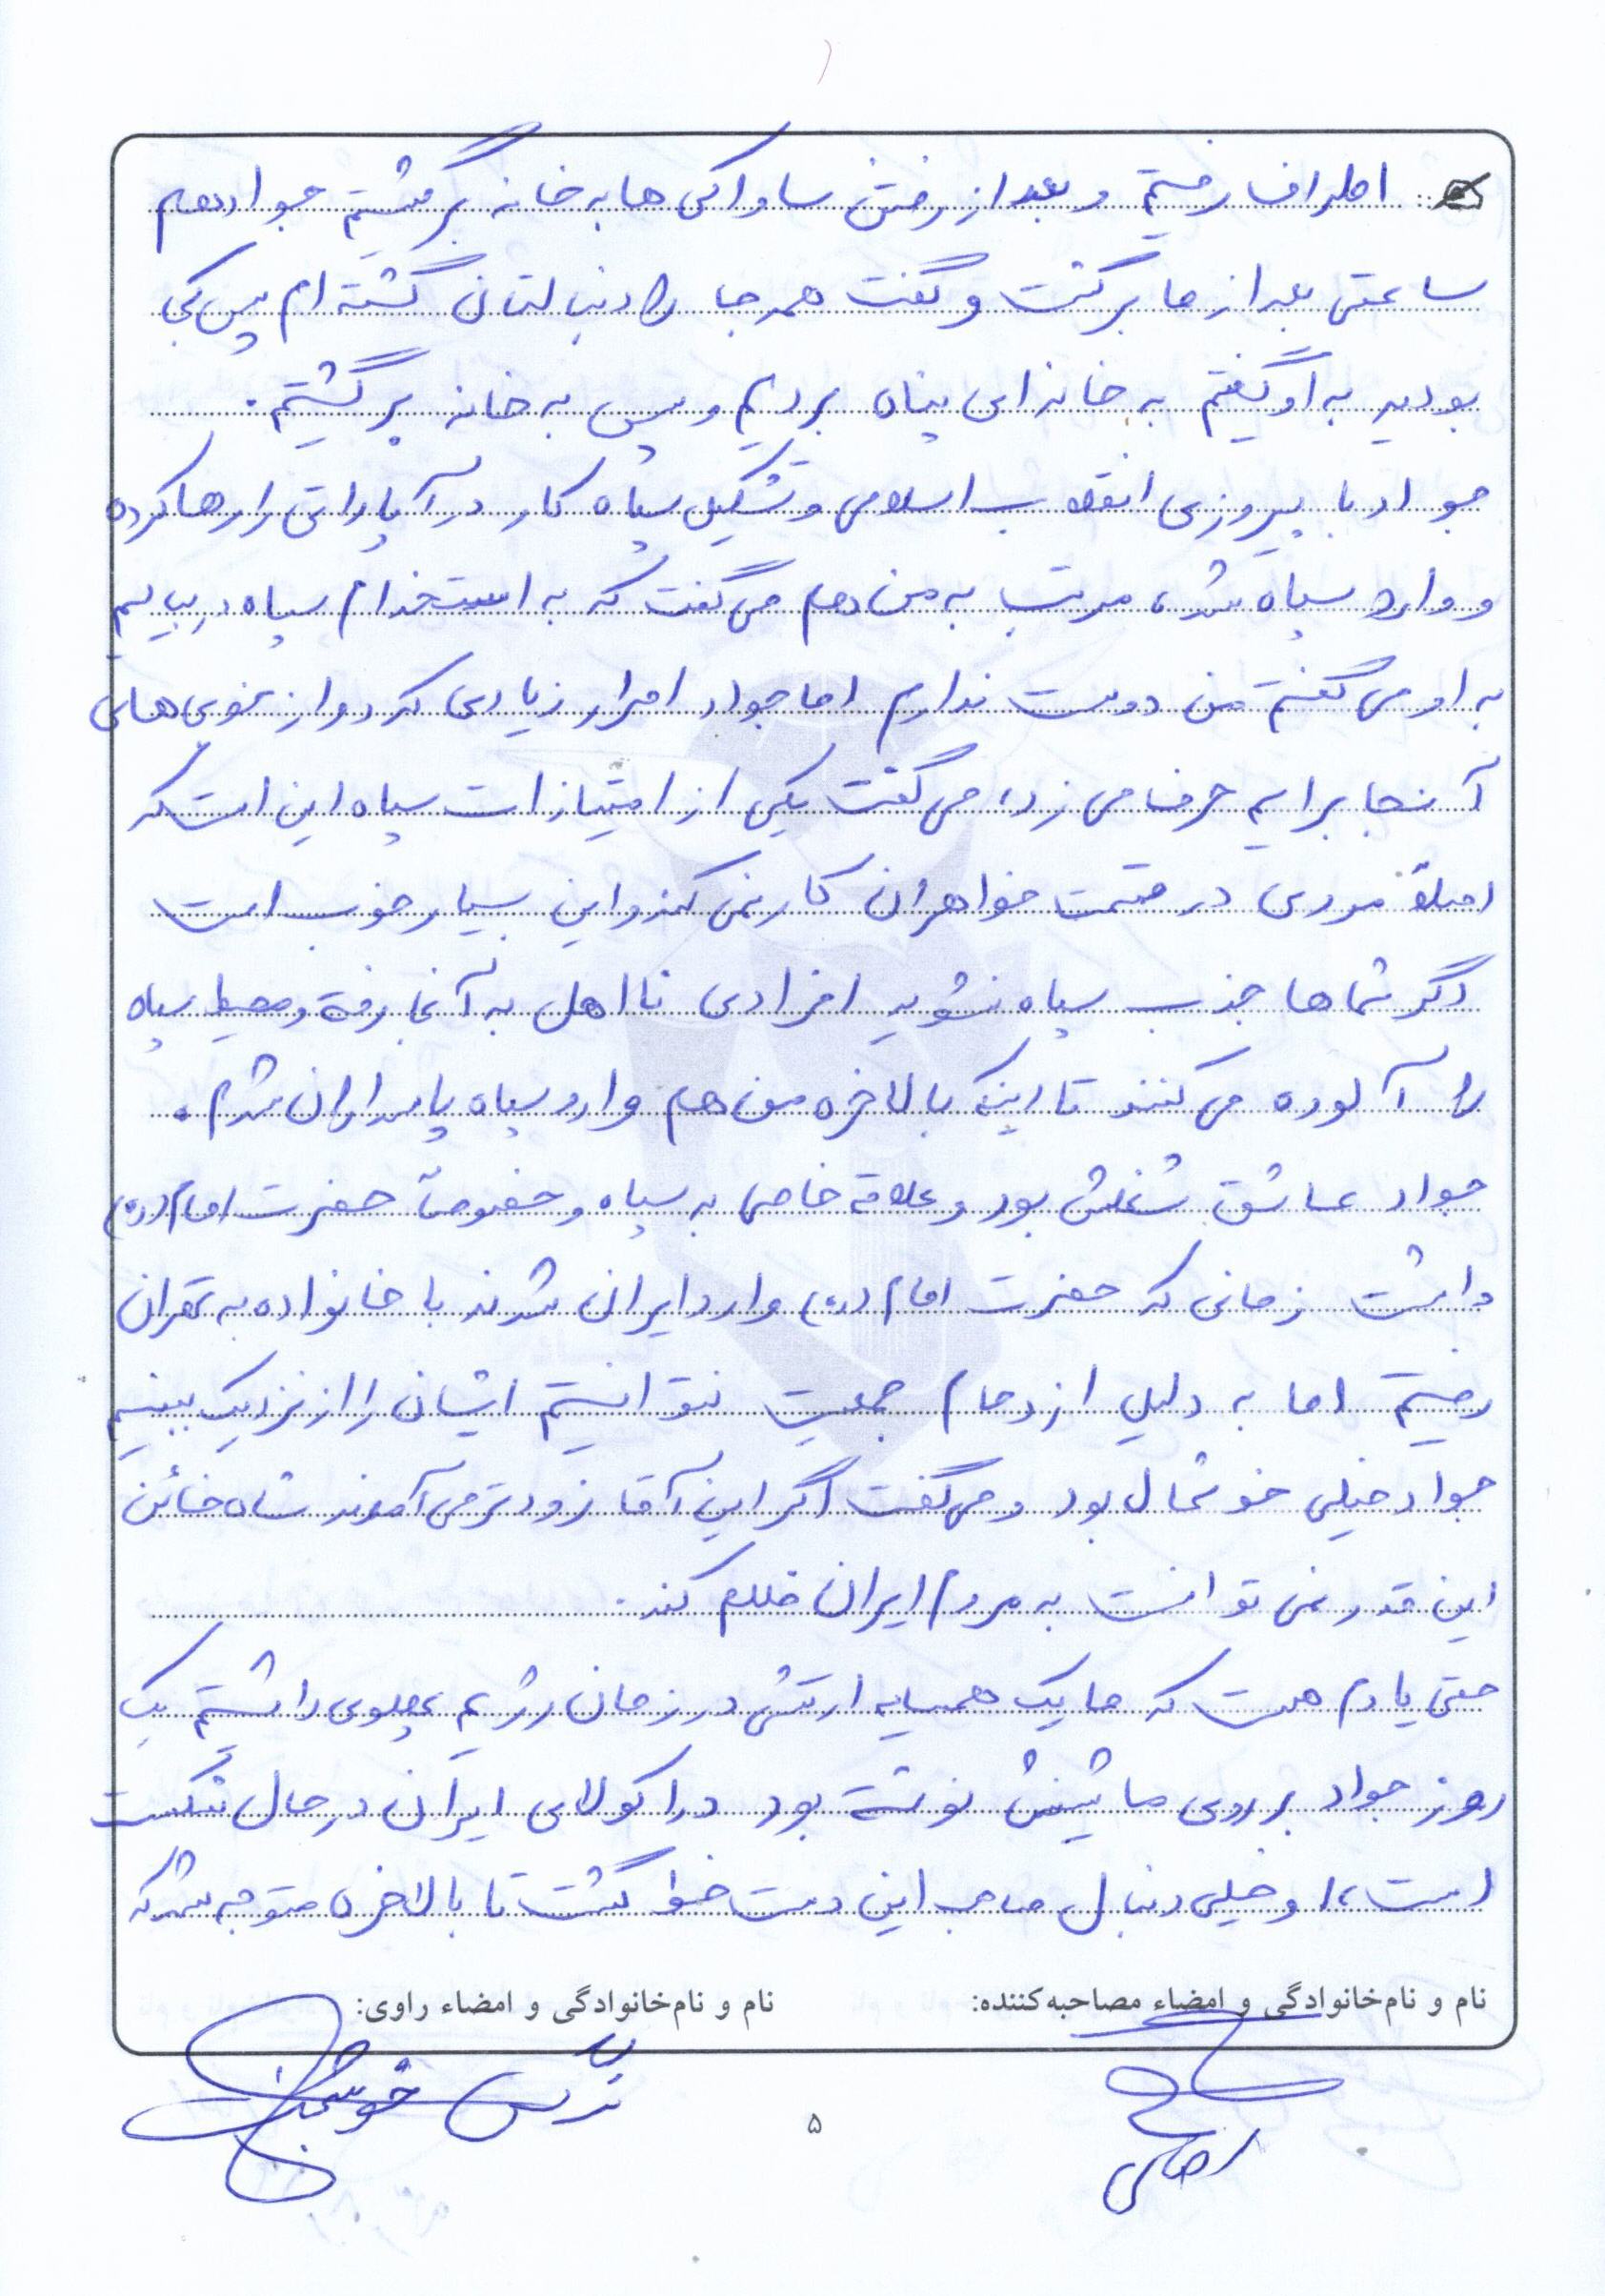 اطراف رفتیم و بعد از رفتن ساواکی ها به خانه برگشتیم جواد هم
ساعتی بعد از ما برگشت و گفت همه جا را دنبالتان گشته ام پس کجا
بودید به او گفتم به خانه ای پناه بردیم و پس به خانه برگشتیم.
جواد با پیروزی انقلاب اسلامی و تشکیل سپاه کار در آپاراتی را رها کرده
و وارد سپاه شد، مرتب به من هم می گفت که به استخدام سپاه در بیایم
به او می گفتم من دوست ندارم اما جواد اصرار زیادی کرد و از خوبی های
آنجا برایم حرف می زد، می گفت یکی از امتیازات سپاه این است که
اصلاً مردی در قسمت خواهران کار نمی کند و این بسیار خوب است
اگر شماها جذب سپاه نشوید افرادی نااهل به آنجا رفته و محیط سپاه
را آلوده می کنند تا اینکه بالاخره من هم وارد سپاه پاسداران شدم.
جواد عاشق شغلش بود و علاقه خاصی به سپاه و خصوصاً حضرت امام (ره)
داشت زمانی که حضرت امام (ره) وارد ایران شدند با خانواده به تهران
رفتیم اما به دلیل ازدحام جمعیت نتوانستیم ایشان را از نزدیک ببینیم
جواد خیلی خوشحال بود و می گفت اگر این آقا زودتر می آمدند شاه خائن
این قدر نمی توانست به مردم ایران ظلم کند.
حتی یادم هست که ما یک همسایه ارتشی در زمان رژیم پهلوی داشتیم یک
روز جواد بر روی ماشینش نوشته بود دراکولای ایران در حال شکست
است، او خیلی دنبال صاحب این دست خط گشت تا بالاخره متوجه شد که
نام و نام‌خانوادگی و امضاء مصاحبه‌کننده: نام و نام‌خانوادگی و امضاء راوی:
نرگس
۵